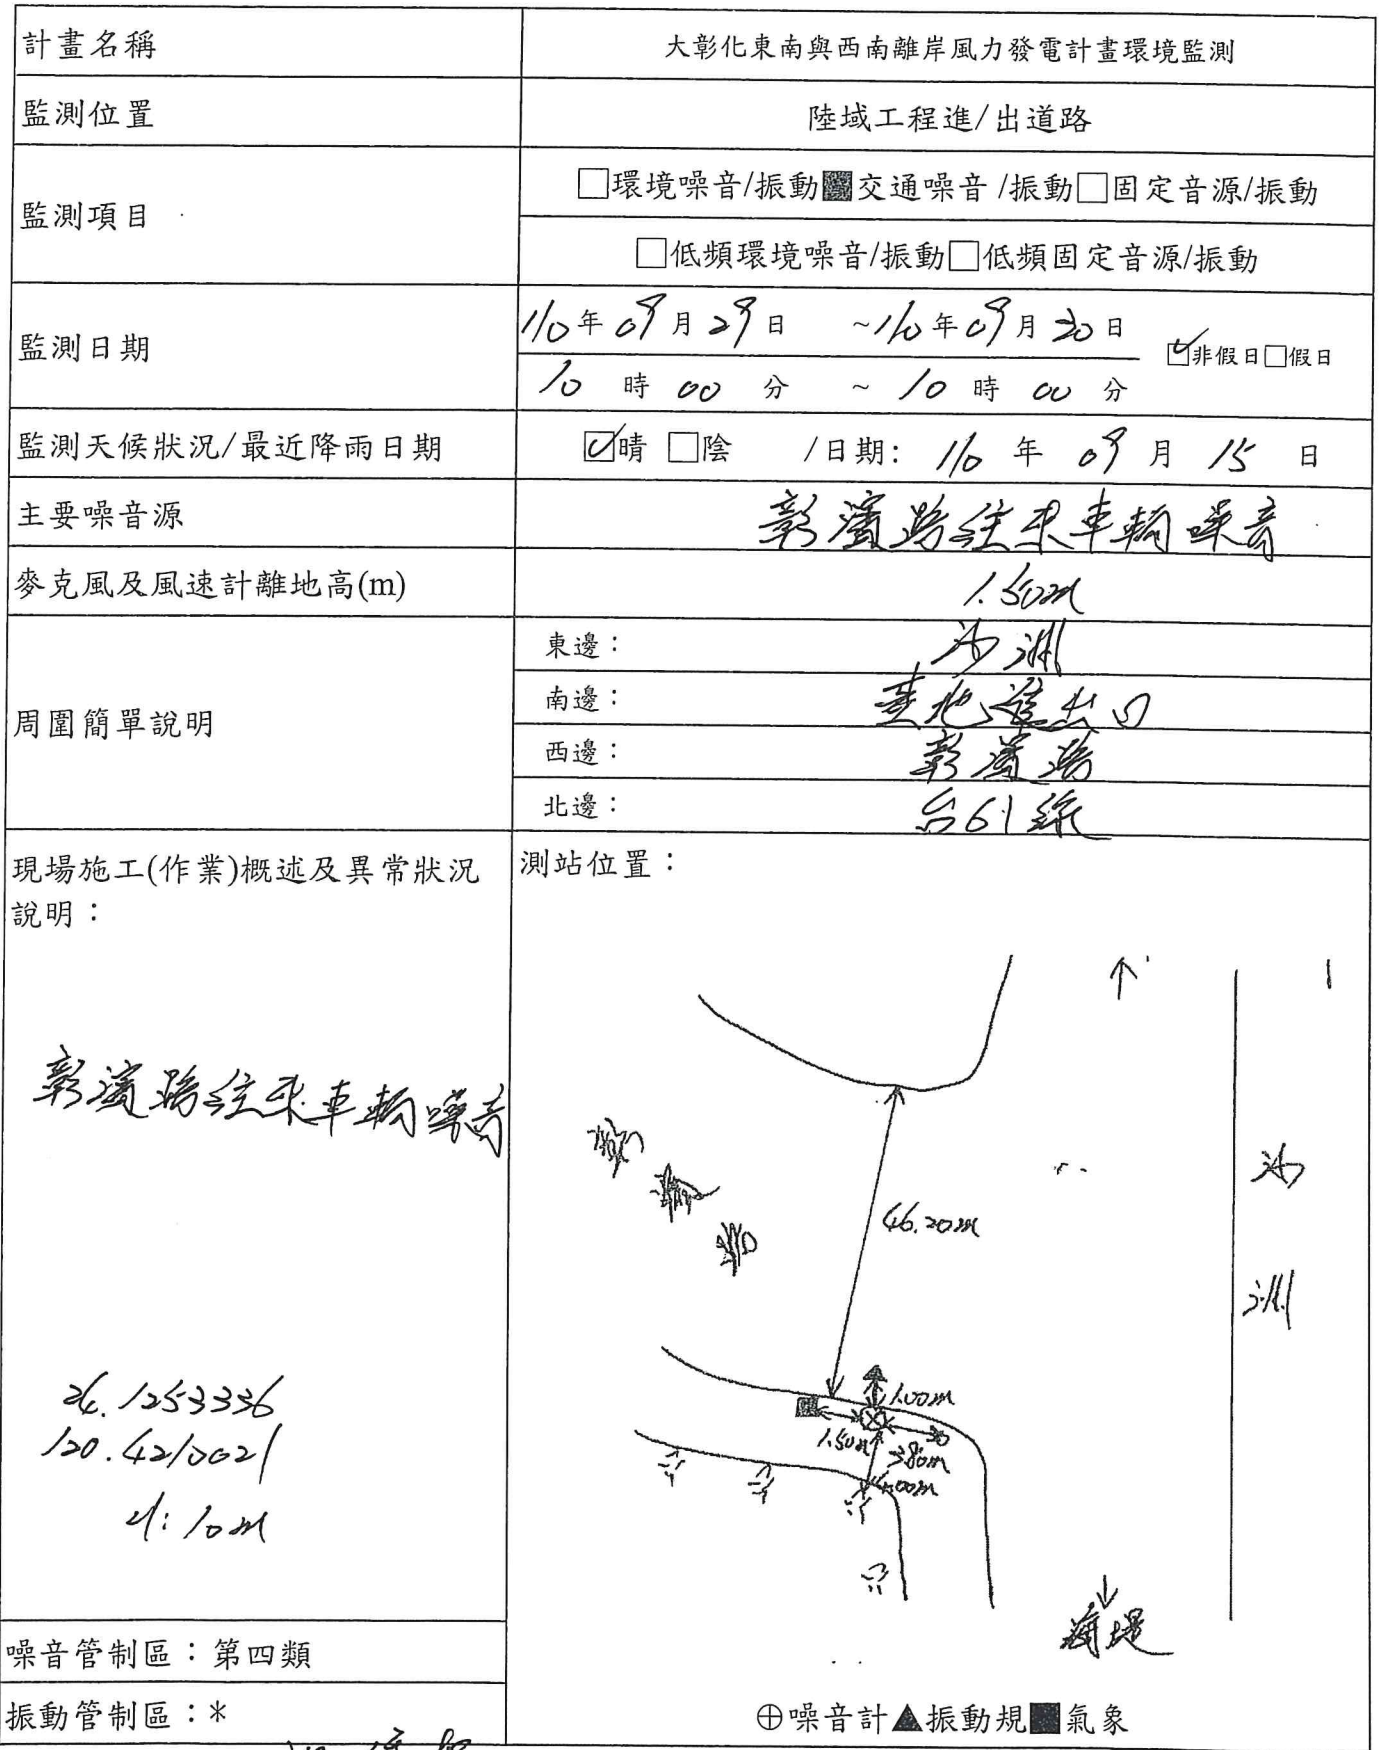 計畫名稱 大彰化東南與西南離岸風力發電計畫環境監測
監測位置 陸域工程進/出道路
監測項目 □環境噪音/振動■交通噪音/振動□固定音源/振動
□低頻環境噪音/振動□低頻固定音源/振動
監測日期 110年09月29日 ~110年09月30日 ☑非假日□假日
10時00分 ~ 10時00分
監測天候狀況/最近降雨日期 ☑晴 □陰 /日期: 110年09月15日
主要噪音源 彰濱路往來車輛噪音
麥克風及風速計離地高(m) 1.50m
周圍簡單說明 東邊: 沙洲
南邊: 基地進出口
西邊: 彰濱路
北邊: 台61線
現場施工(作業)概述及異常狀況
說明:
彰濱路往來車輛噪音
24.1253336
120.4210021
±:10m
測站位置:
↑
彰濱路
46.20m
沙洲
1.00m
1.50m
3.80m
4.00m
↓
海堤
噪音管制區:第四類
振動管制區:*
⊕噪音計▲振動規■氣象